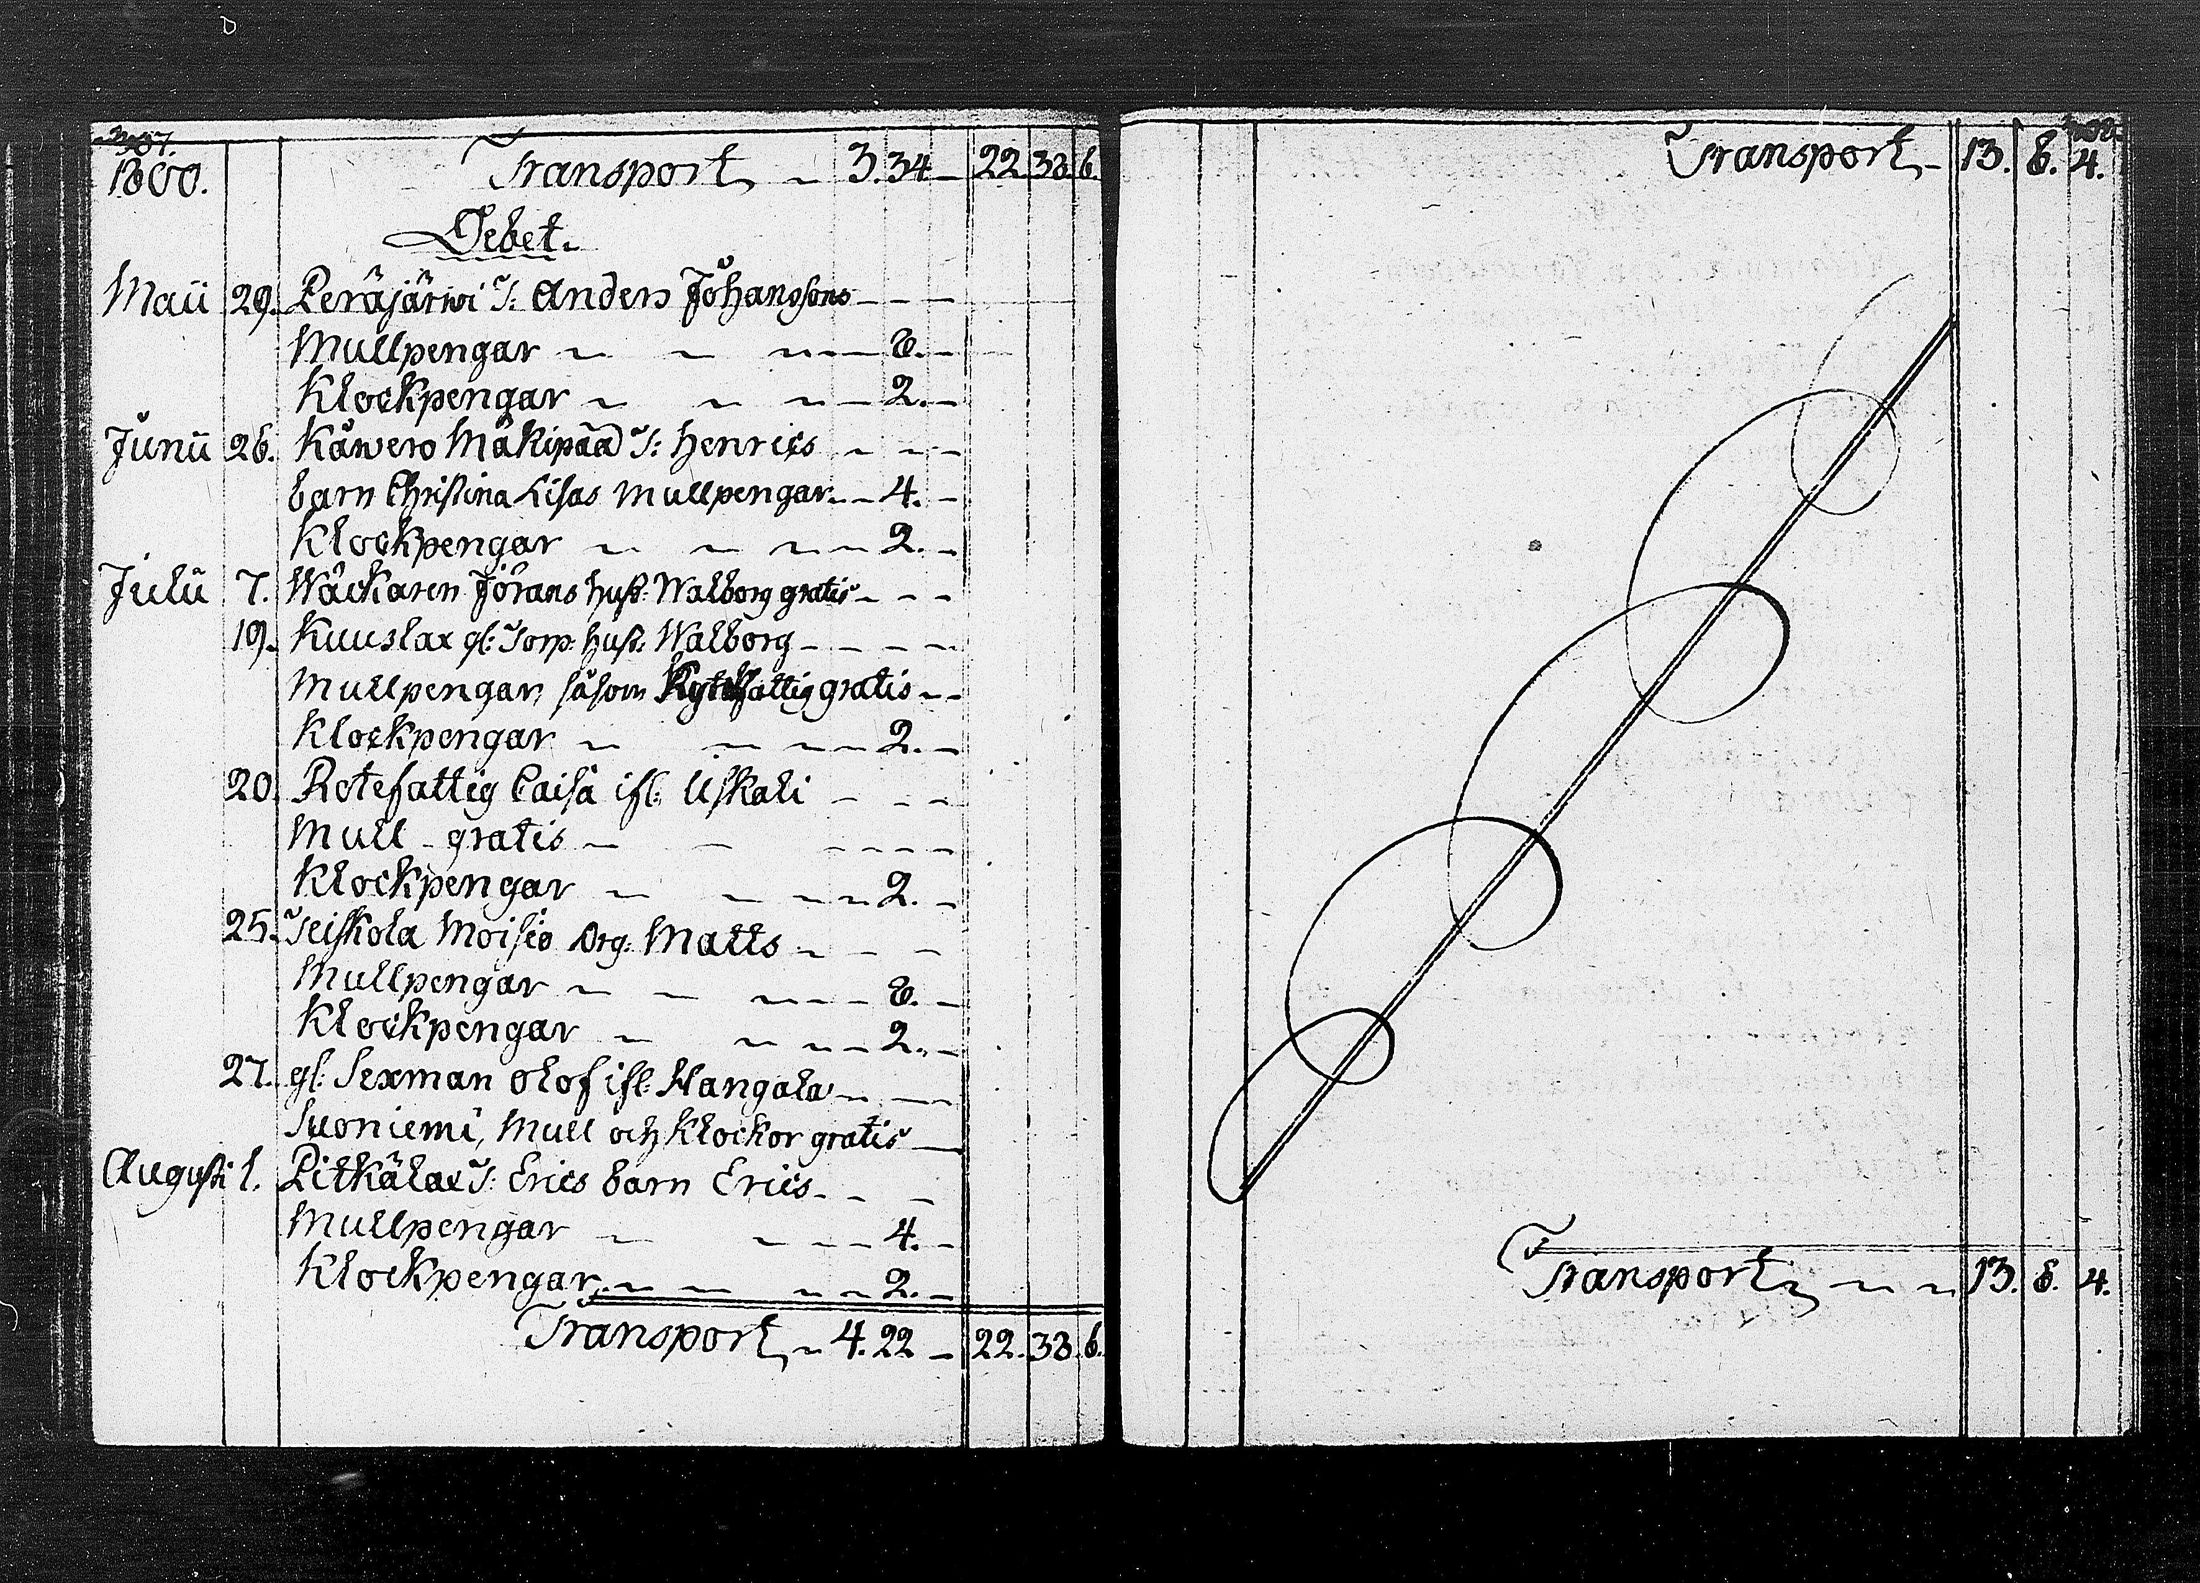 1800. Transport 3. 34 — 22. 33. 6.
Debet.
Maii 29. Peräjärwi T: Anders Johanssons
Mullpengar 8. —
Klockpengar 2. —
Junii 26. Käwero Mäkipää T: Henrics
barn Christina Lisas Mullpengar 4. —
Klockpengar 2. —
Julii 7. Wäckaren Jörans hust: Walborg gratis
19. Kuuslax gl: Torp: hust: Walborg
Mullpengar, såsom fattig gratis
Klockpengar 2. —
20. Rotefattig Caisa ifl: Uskali
Mull - gratis
Klockpengar 2. —
25. Teiskola Moisio Drg: Matts
Mullpengar 8. —
Klockpengar 2. —
27. gl: Sexman Olof ifl: Hangala
Suoniemi, Mull och Klockor gratis
Augusti 1. Pitkälax T: Erics barn Erics
Mullpengar 4. —
Klockpengar 2. —
Transport 4. 22 — 22. 33. 6.
Transport 13. 8. 4.
Transport 13. 8. 4.